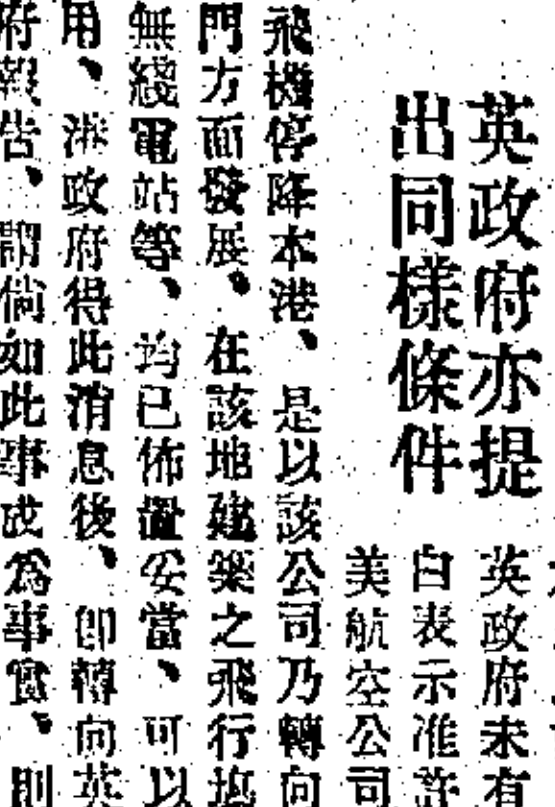 英政府亦提
出同樣條件
英政府未有
白表示准許
美航空公司
飛機停降本港、是以該公司乃轉向
門方面發展、在該地建築之飛行塲
無綫電站等、均已佈置妥當、可以
用、港政府得此消息後、卽轉向英
府報告、謂倘如此事成爲事實、則